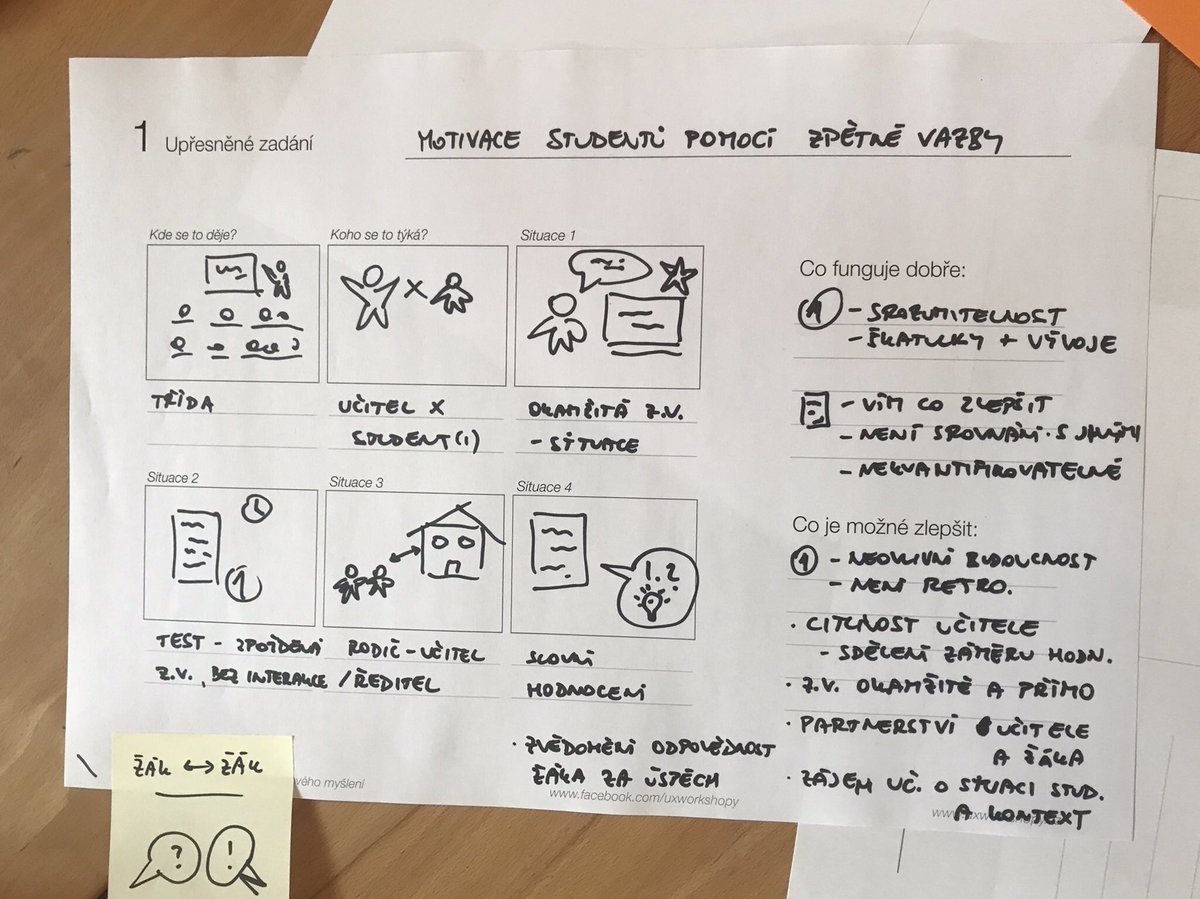 1 Upřesněné zadání
MOTIVACE STUDENTŮ POMOCÍ ZPĚTNÉ VAZBY
Kde se to děje?
TŘÍDA
Koho se to týká?
UČITEL X
STUDENT(I)
Situace 1
OKAMŽITÁ Z.V.
- SITUACE
Situace 2
1
TEST - ZPOŽDĚNÁ
Z.V., BEZ INTERAKCE
Situace 3
RODIČ - UČITEL
/ŘEDITEL
Situace 4
1.2
SLOVNÍ
HODNOCENÍ
Co funguje dobře:
1 - SROZUMITELNOST
- ŠKATULKY + VÝVOJE
- VÍM CO ZLEPŠIT
- NENÍ SROVNÁNÍ S JINÝMI
- NEKVANTIFIKOVATELNÉ
Co je možné zlepšit:
1 - NEOVLIVNÍ BUDOUCNOST
- NENÍ RETRO.
· CITLNOST UČITELE
- SDĚLENÍ ZÁMĚRU HODN.
· Z.V. OKAMŽITĚ A PŘÍMO
· PARTNERSTVÍ UČITELE
A ŽÁKA
· ZÁJEM UČ. O SITUACI STUD.
A KONTEXT
· ZVĚDOMĚNÍ ODPOVĚDNOST
ŽÁKA ZA ÚSPĚCH
vého myšlení
www.facebook.com/uxworkshopy
ŽÁK ↔ ŽÁK
? !